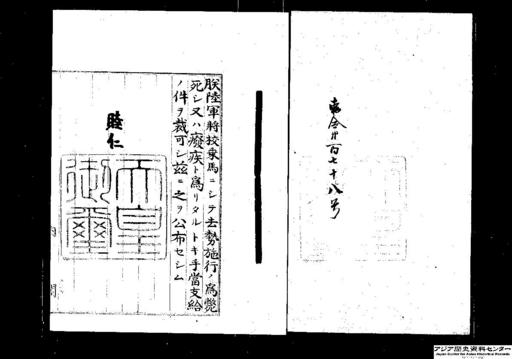 勅令第百七十八号
朕陸軍将校乗馬ニシテ去勢施行ノ為斃
死シ又ハ癈疾ト為リタルトキ手當支給
ノ件ヲ裁可シ茲ニ之ヲ公布セシム
睦仁
天皇
御璽
内閣
アジア歴史資料センター
Japan Center for Asian Historical Records